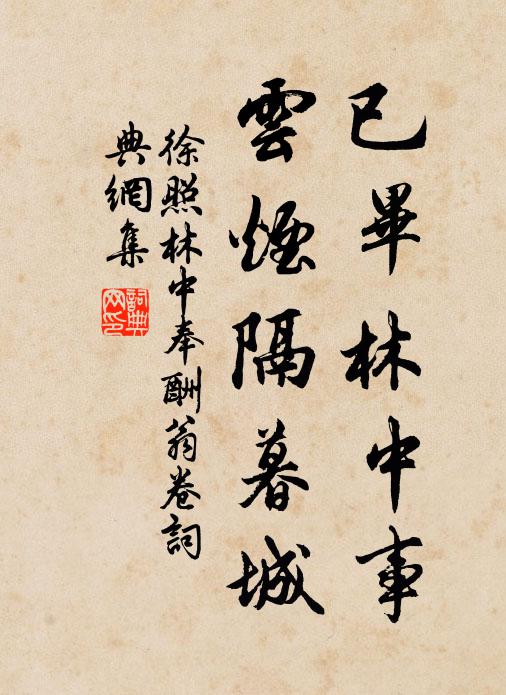 已畢林中事
雲煙隔暮城
徐照林中奉酬翁卷詞
典網集
詞典網印